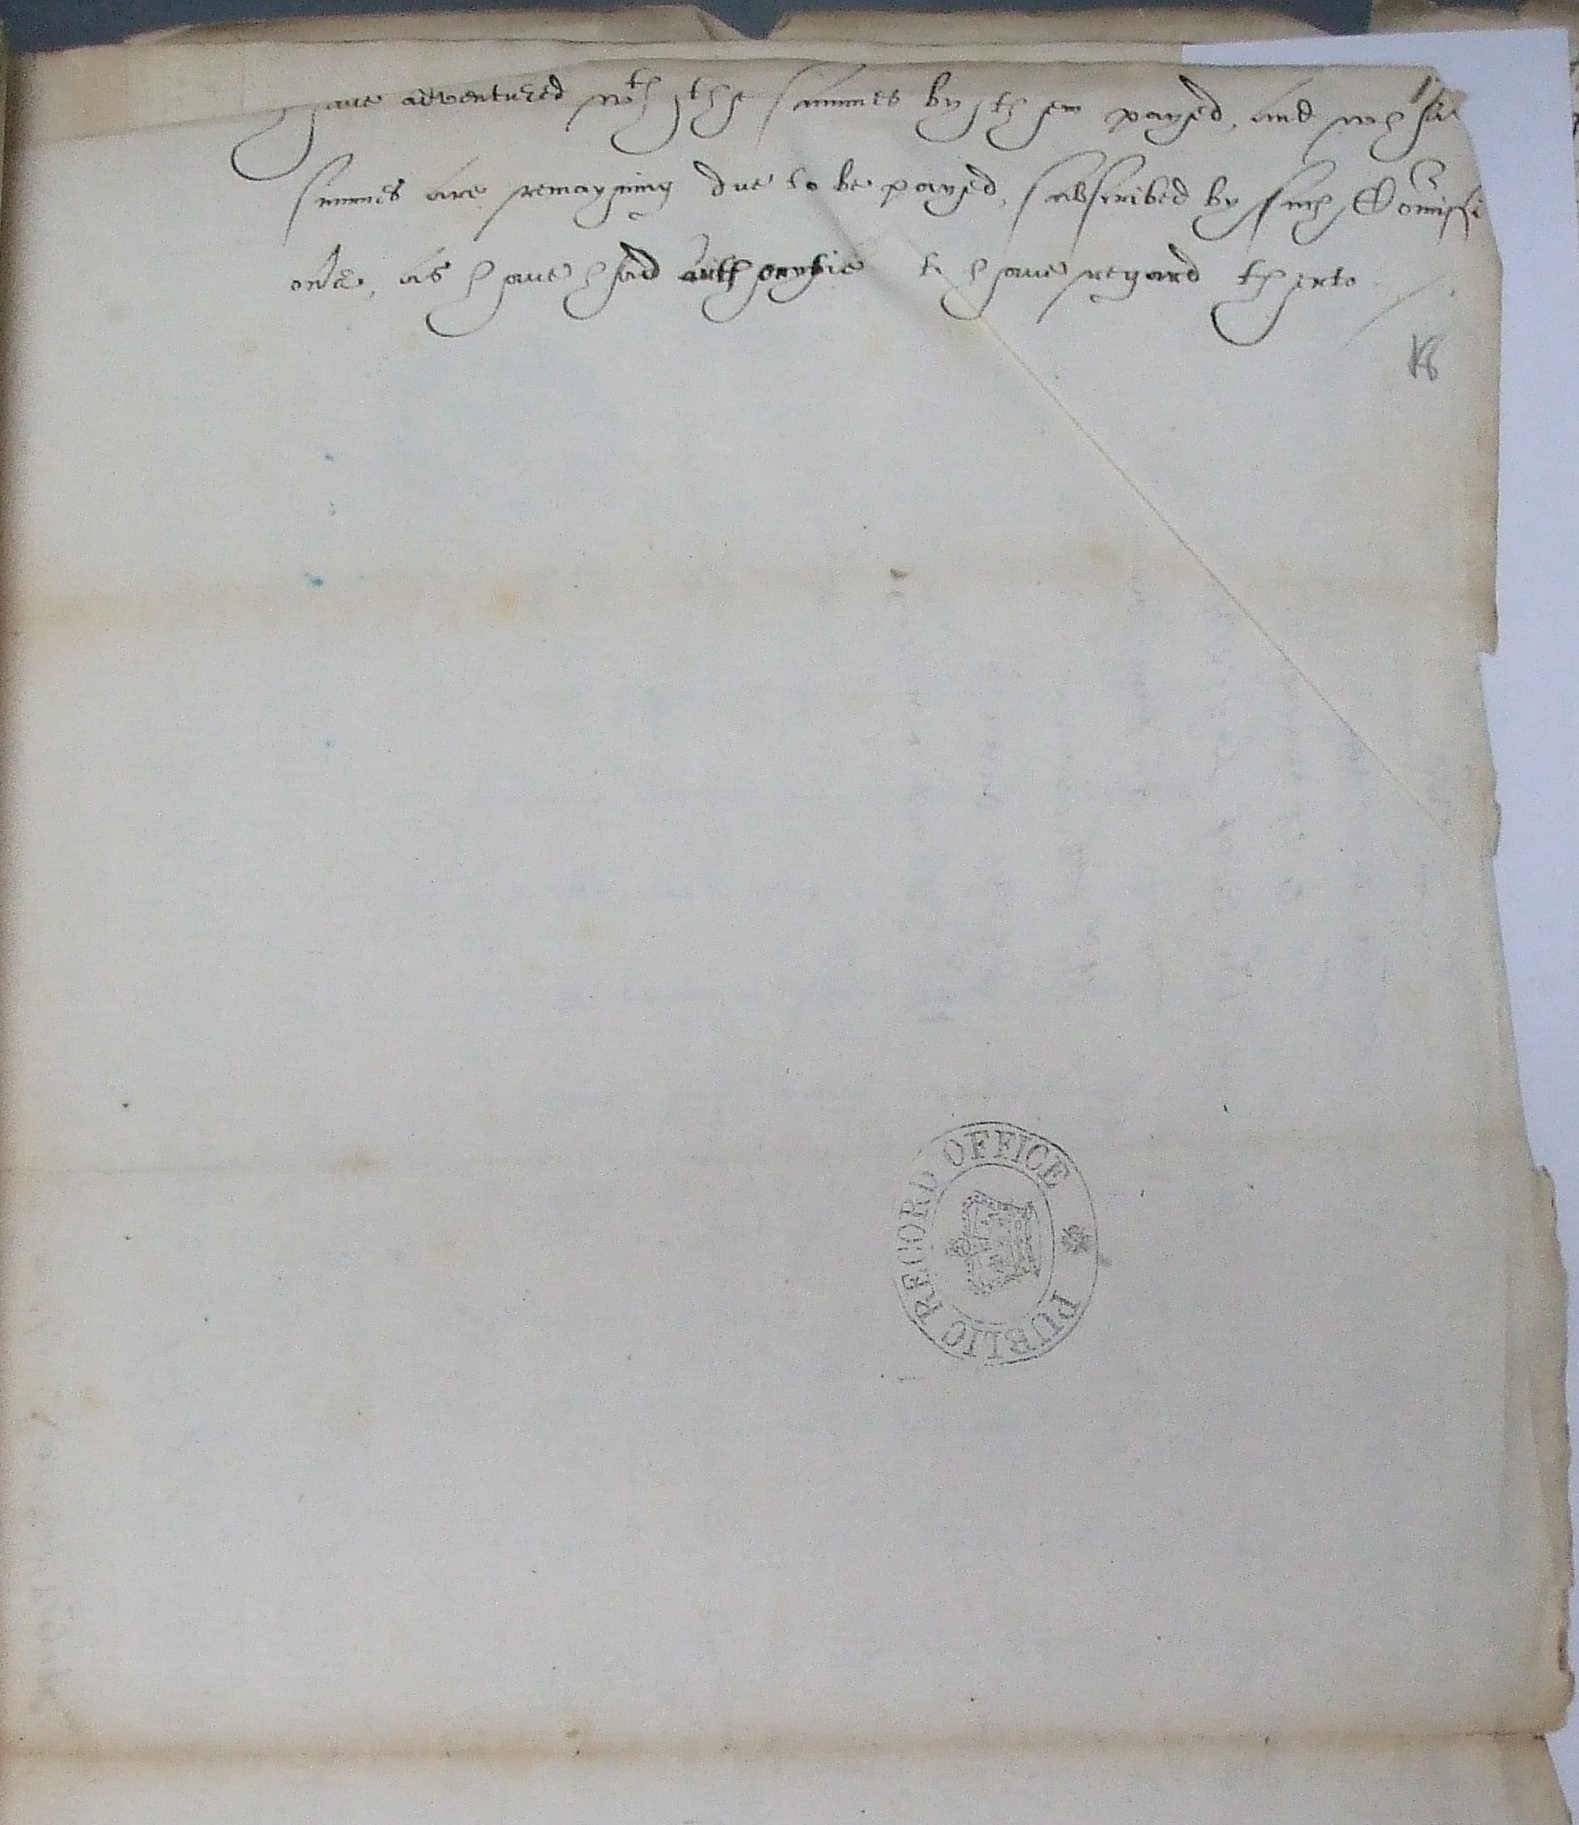 haue adventured wth the summes by them payed, and wch
summes are remayning due to be payed, subscribed by such Comissi
oners, as haue had authorytie to haue regard therto
18
PUBLIC RECORD OFFICE